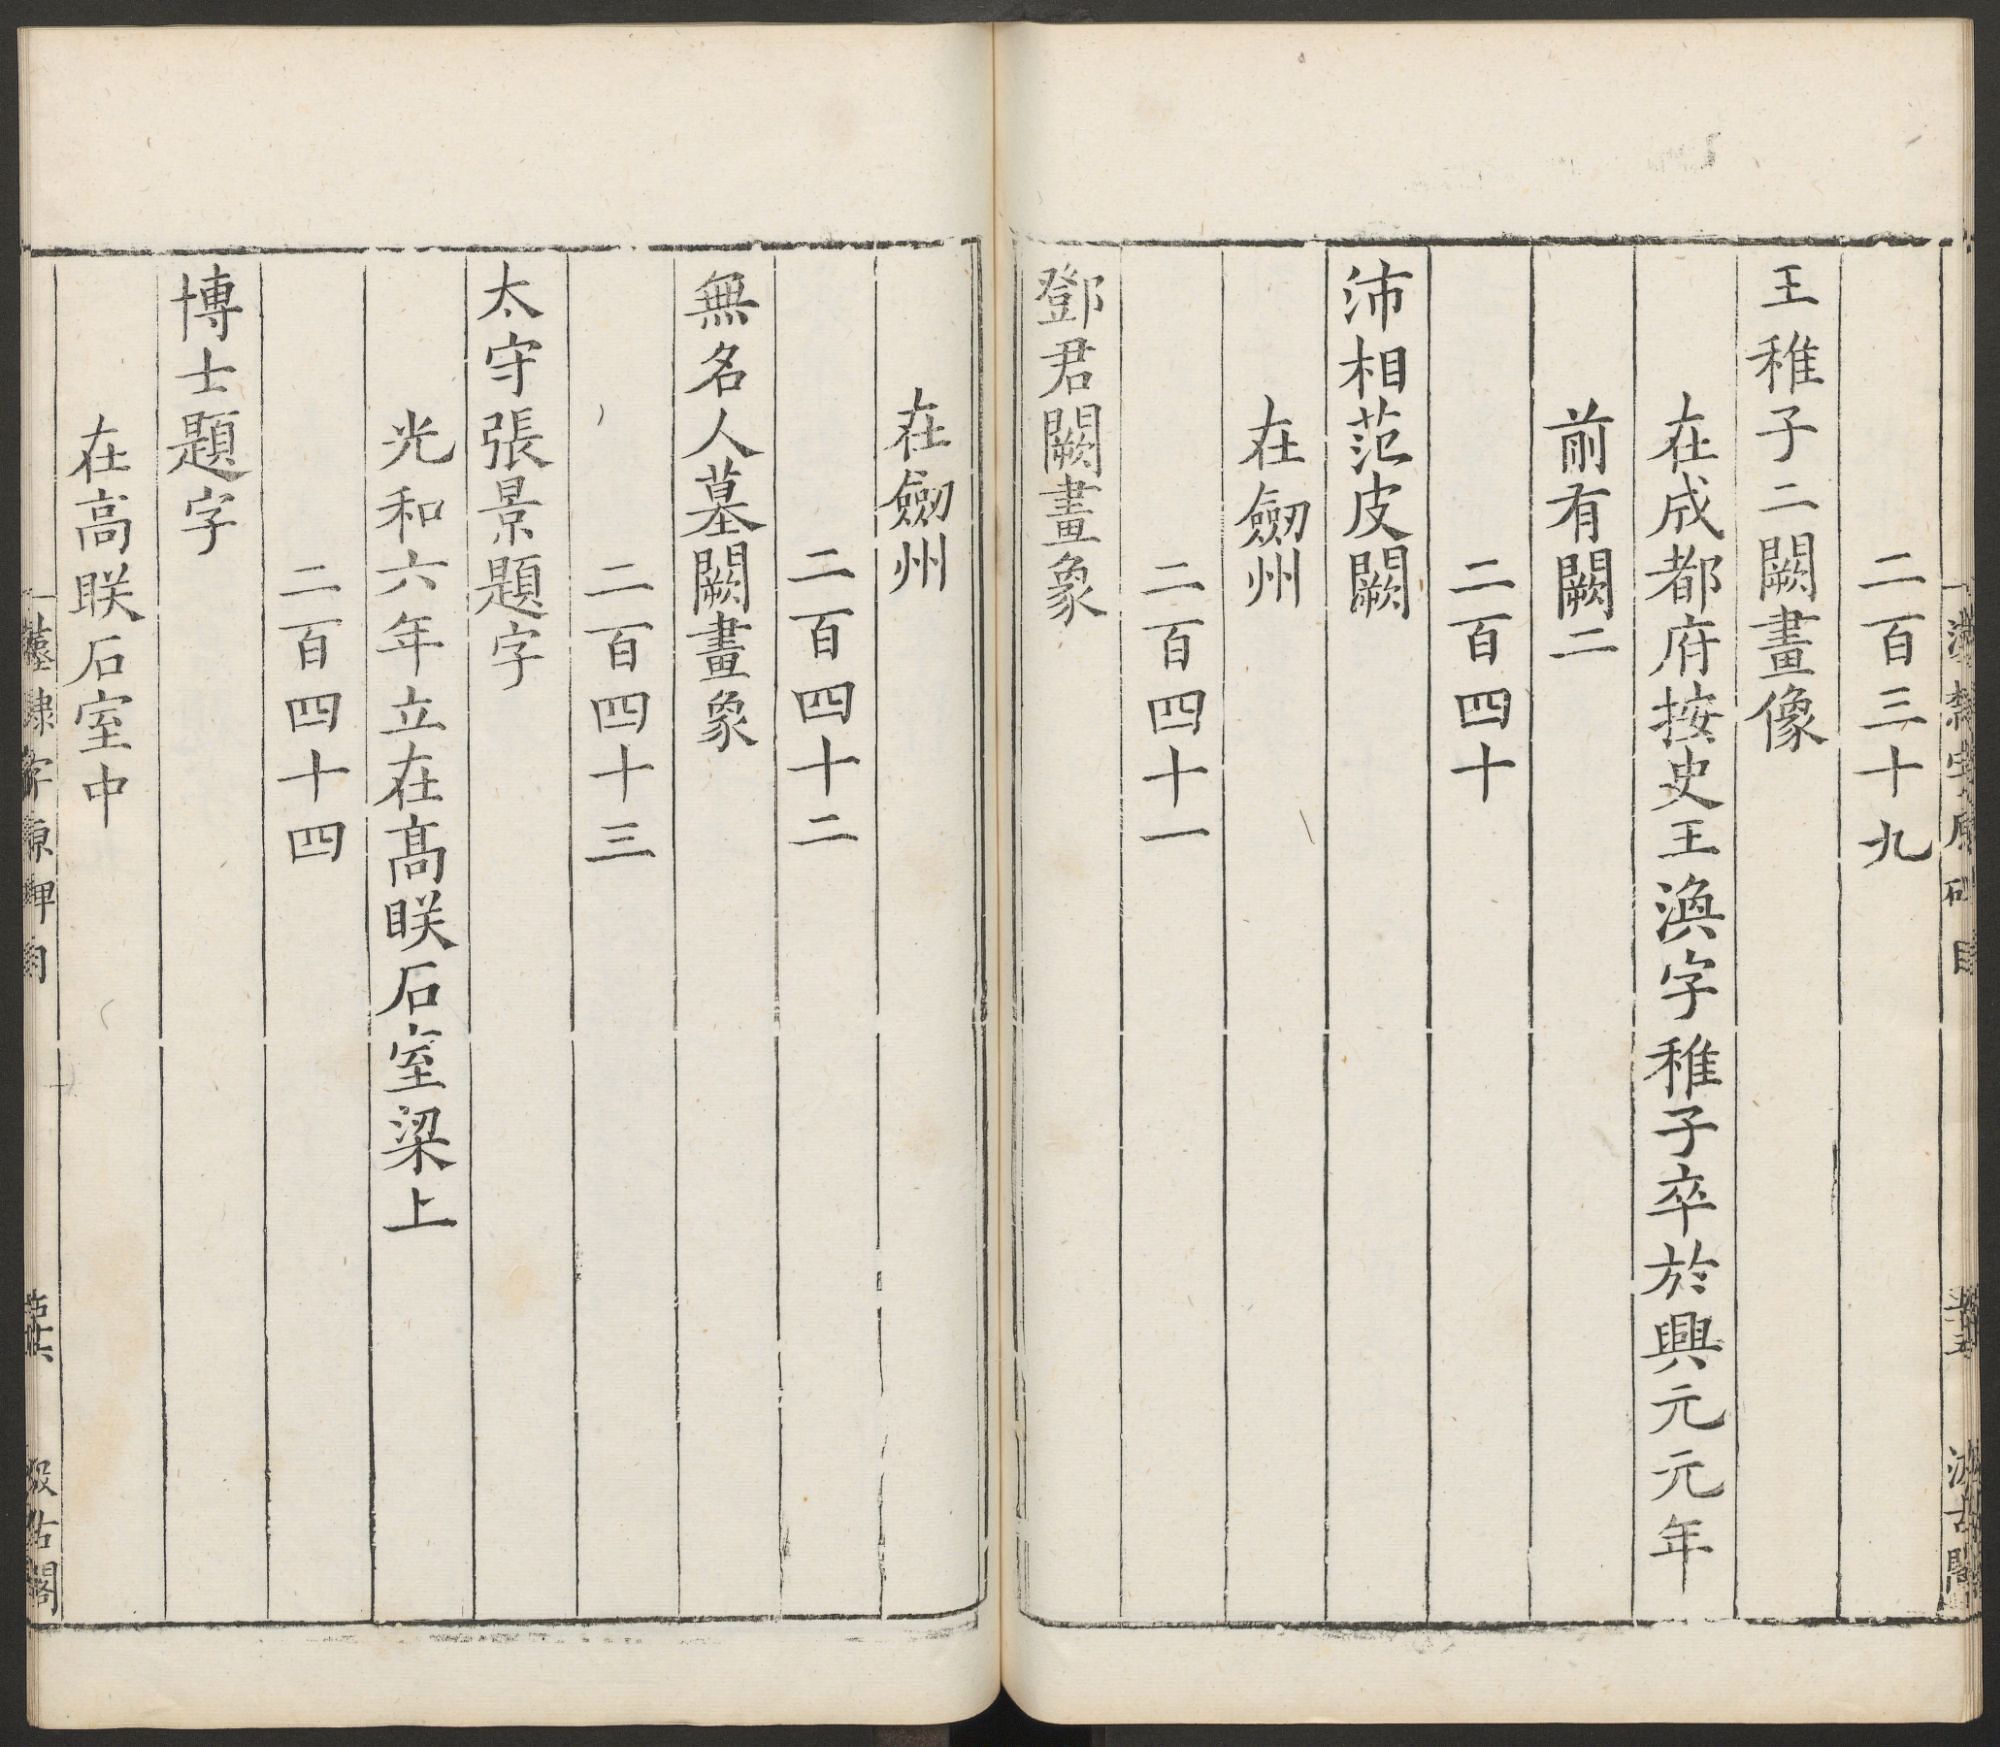 二百三十九
王稚子二闕畫像
在成都府按史王渙字稚子卒於興元元年
前有闕二
二百四十
沛相范皮闕
在劒州
二百四十一
鄧君闕畫象
在劒州
二百四十二
無名人墓闕畫象
二百四十三
太守張景題字
光和六年立在髙眹石室梁上
二百四十四
博士題字
在高眹石室中
漢隸字原碑目
汲古閣